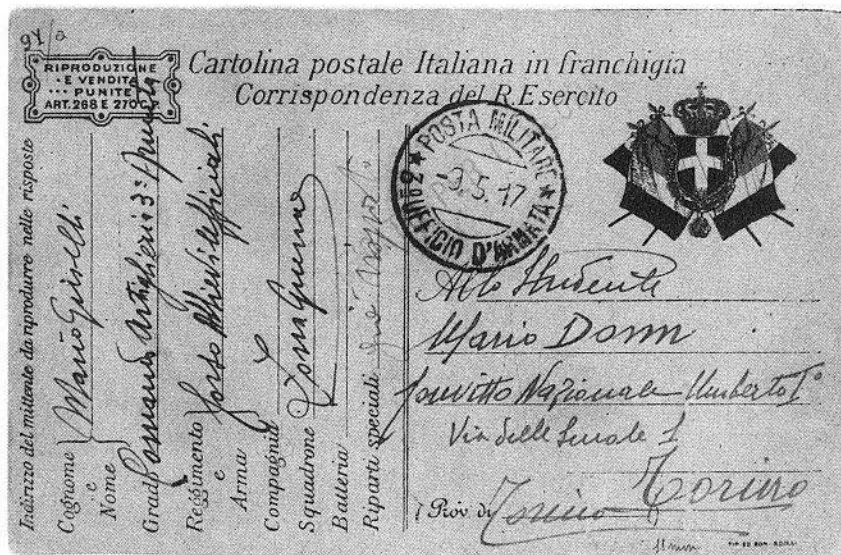 94/a
RIPRODUZIONE
E VENDITA
PUNITE
ART. 268 E 270 C.P.
Cartolina postale Italiana in franchigia
Corrispondenza del R. Esercito
POSTA MILITARE
-3.5.17
UFFICIO D'ARMATA
Indirizzo del mittente da riprodurre nelle risposte
Cognome e Nome Mario
Grado Comando Artiglieria 3ª Armata
Reggimento e Arma Corso Allievi Ufficiali
Compagnia
Squadrone Zona Guerra
Batteria
Riparti speciali
Allo Studente
Mario Donn
Convitto Nazionale Umberto I°
Via delle Scuole 1
Torino
(Prov di Torino)